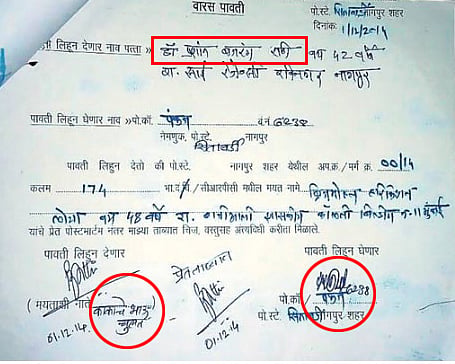 वारस पावती
पो.स्टे. सिताबर्डी नागपूर शहर
दिनांक: 1/12/2014
पावती लिहून देणार नाव पत्ता» डॉ प्रशांत बजरंग राठी वय 42 वर्षे
रा. नागपूर
पावती लिहून घेणार नाव » पो.कॉ. पंकज ब.नं. 6238
नेमणुक पो.स्टे. नागपूर
सिताबर्डी
पावती लिहून देतो की पो.स्टे. नागपूर शहर येथील अप.क्र./ मर्ग क्र. 00/14
कलम 174 भा.द.वि./ सीआरपीसी मधील मयत नामे ब्रिजगोपाल हरकिशन
लोया वय 48 वर्षे रा. मुंबई
यांचे प्रेत पोस्टमार्टम नंतर माझ्या ताब्यात निज, वस्तुसह अंत्यविधी करीता मिळाले.
पावती लिहून देणार प्रेत ताब्यात पावती लिहून घेणार
(मयताशी नाते काकाचे भाऊ चुलत
पो.कॉ. पंकज 6238
पो.स्टे. सिताबर्डी नागपूर शहर
01.12.14 01.12.14